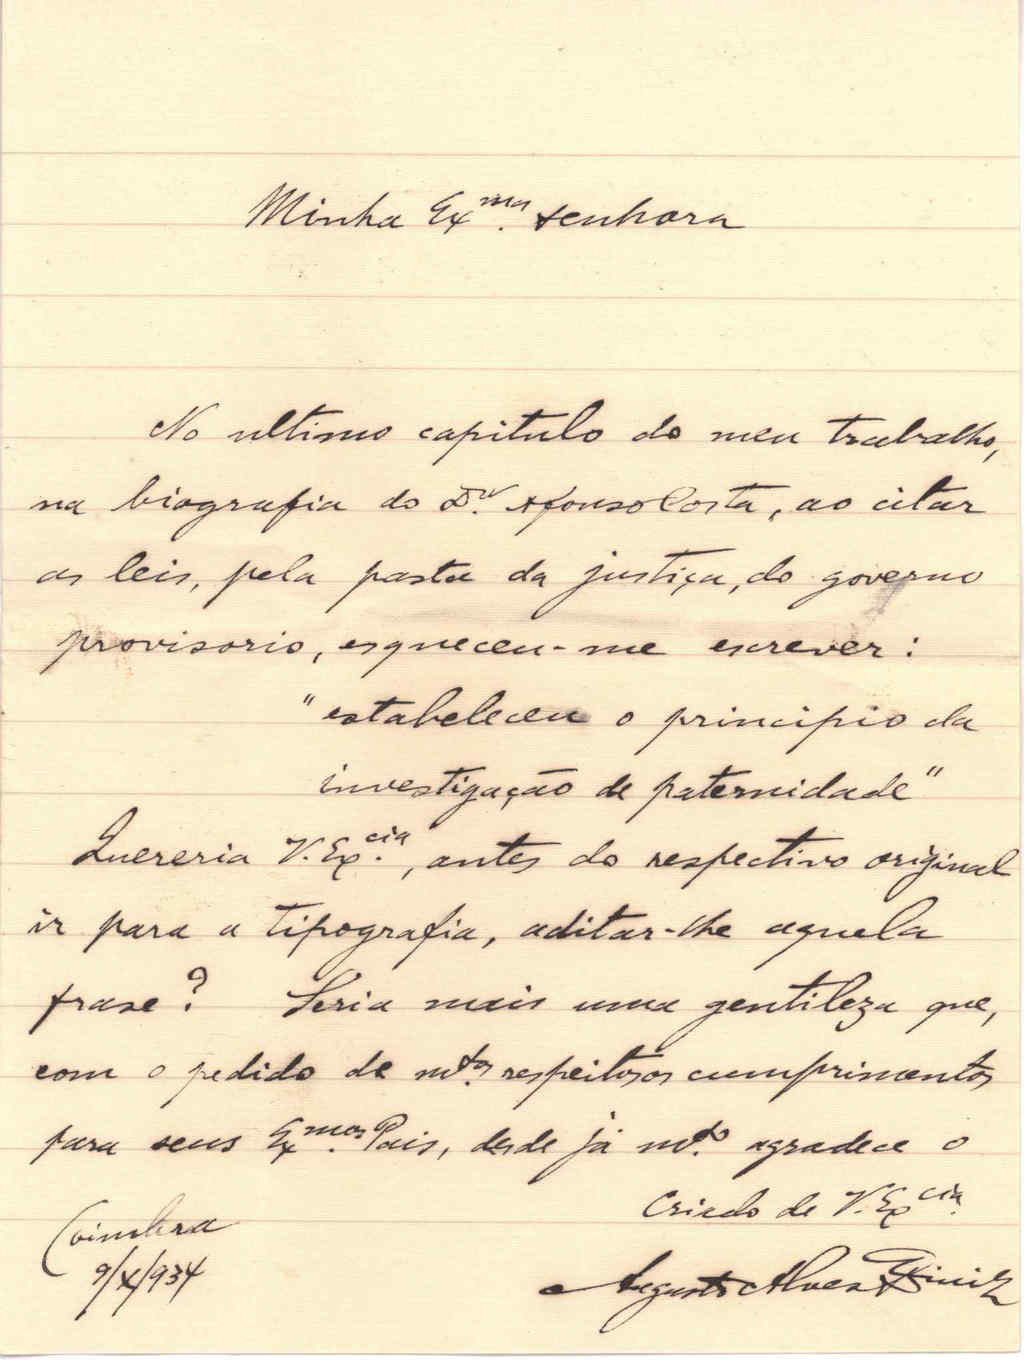 Minha Ex.ma senhora
No ultimo capitulo do meu trabalho,
na biografia do Dr. Afonso Costa, ao citar
as leis, pela pasta da justiça, do governo
provisorio, esqueceu-me escrever:
"estabeleceu o principio da
investigação de paternidade"
Quereria V. Ex.cia, antes do respectivo original
ir para a tipografia, aditar-lhe aquela
frase? Seria mais uma gentileza que,
com o pedido de mtos. respeitosos cumprimentos
para seus Ex.mos Pais, desde já mto. agradece o
Criado de V. Ex.cia
Coimbra
9/X/934
Augusto Alves